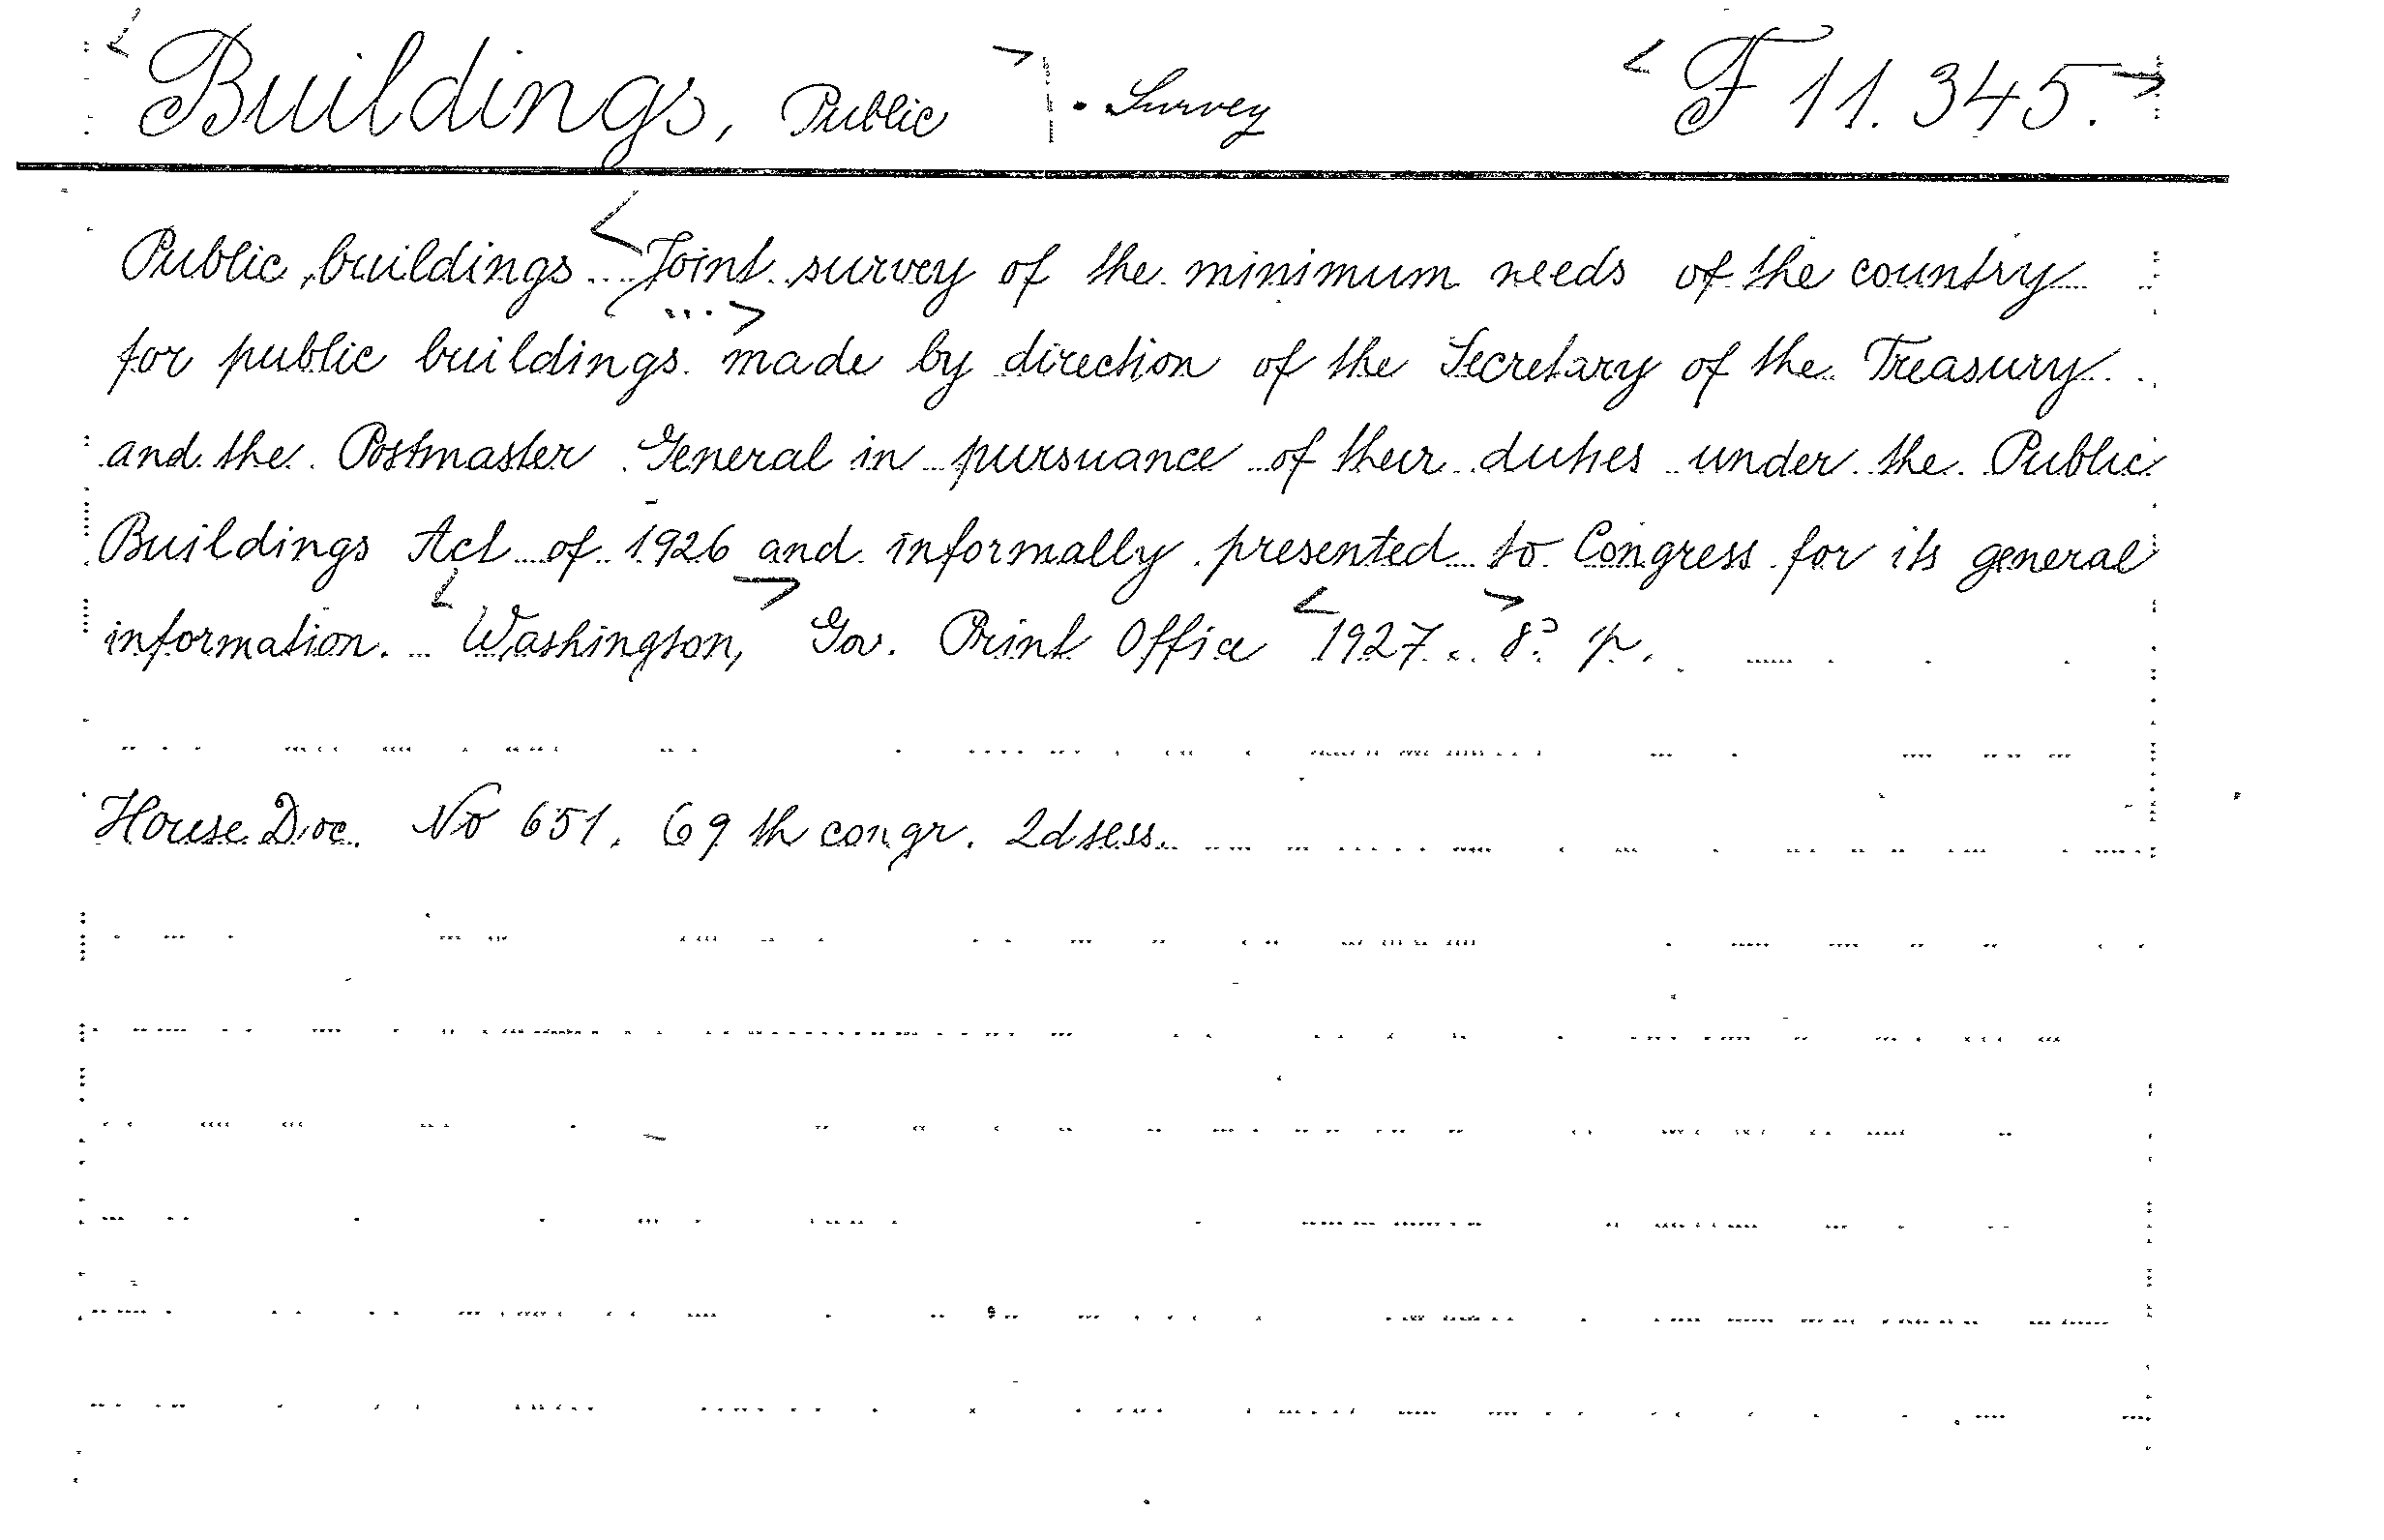 Buildings, Public . Survey F 11.345.
Public buildings ... Joint survey of the minimum needs of the country
for public buildings ... made by direction of the Secretary of the Treasury
and the Postmaster General in pursuance of their duties under the Public
Buildings Act of 1926 and informally presented to Congress for its general
information. Washington, Gov. Print Office 1927. 8° p.
House Doc. No 651. 69th congr. 2d sess.